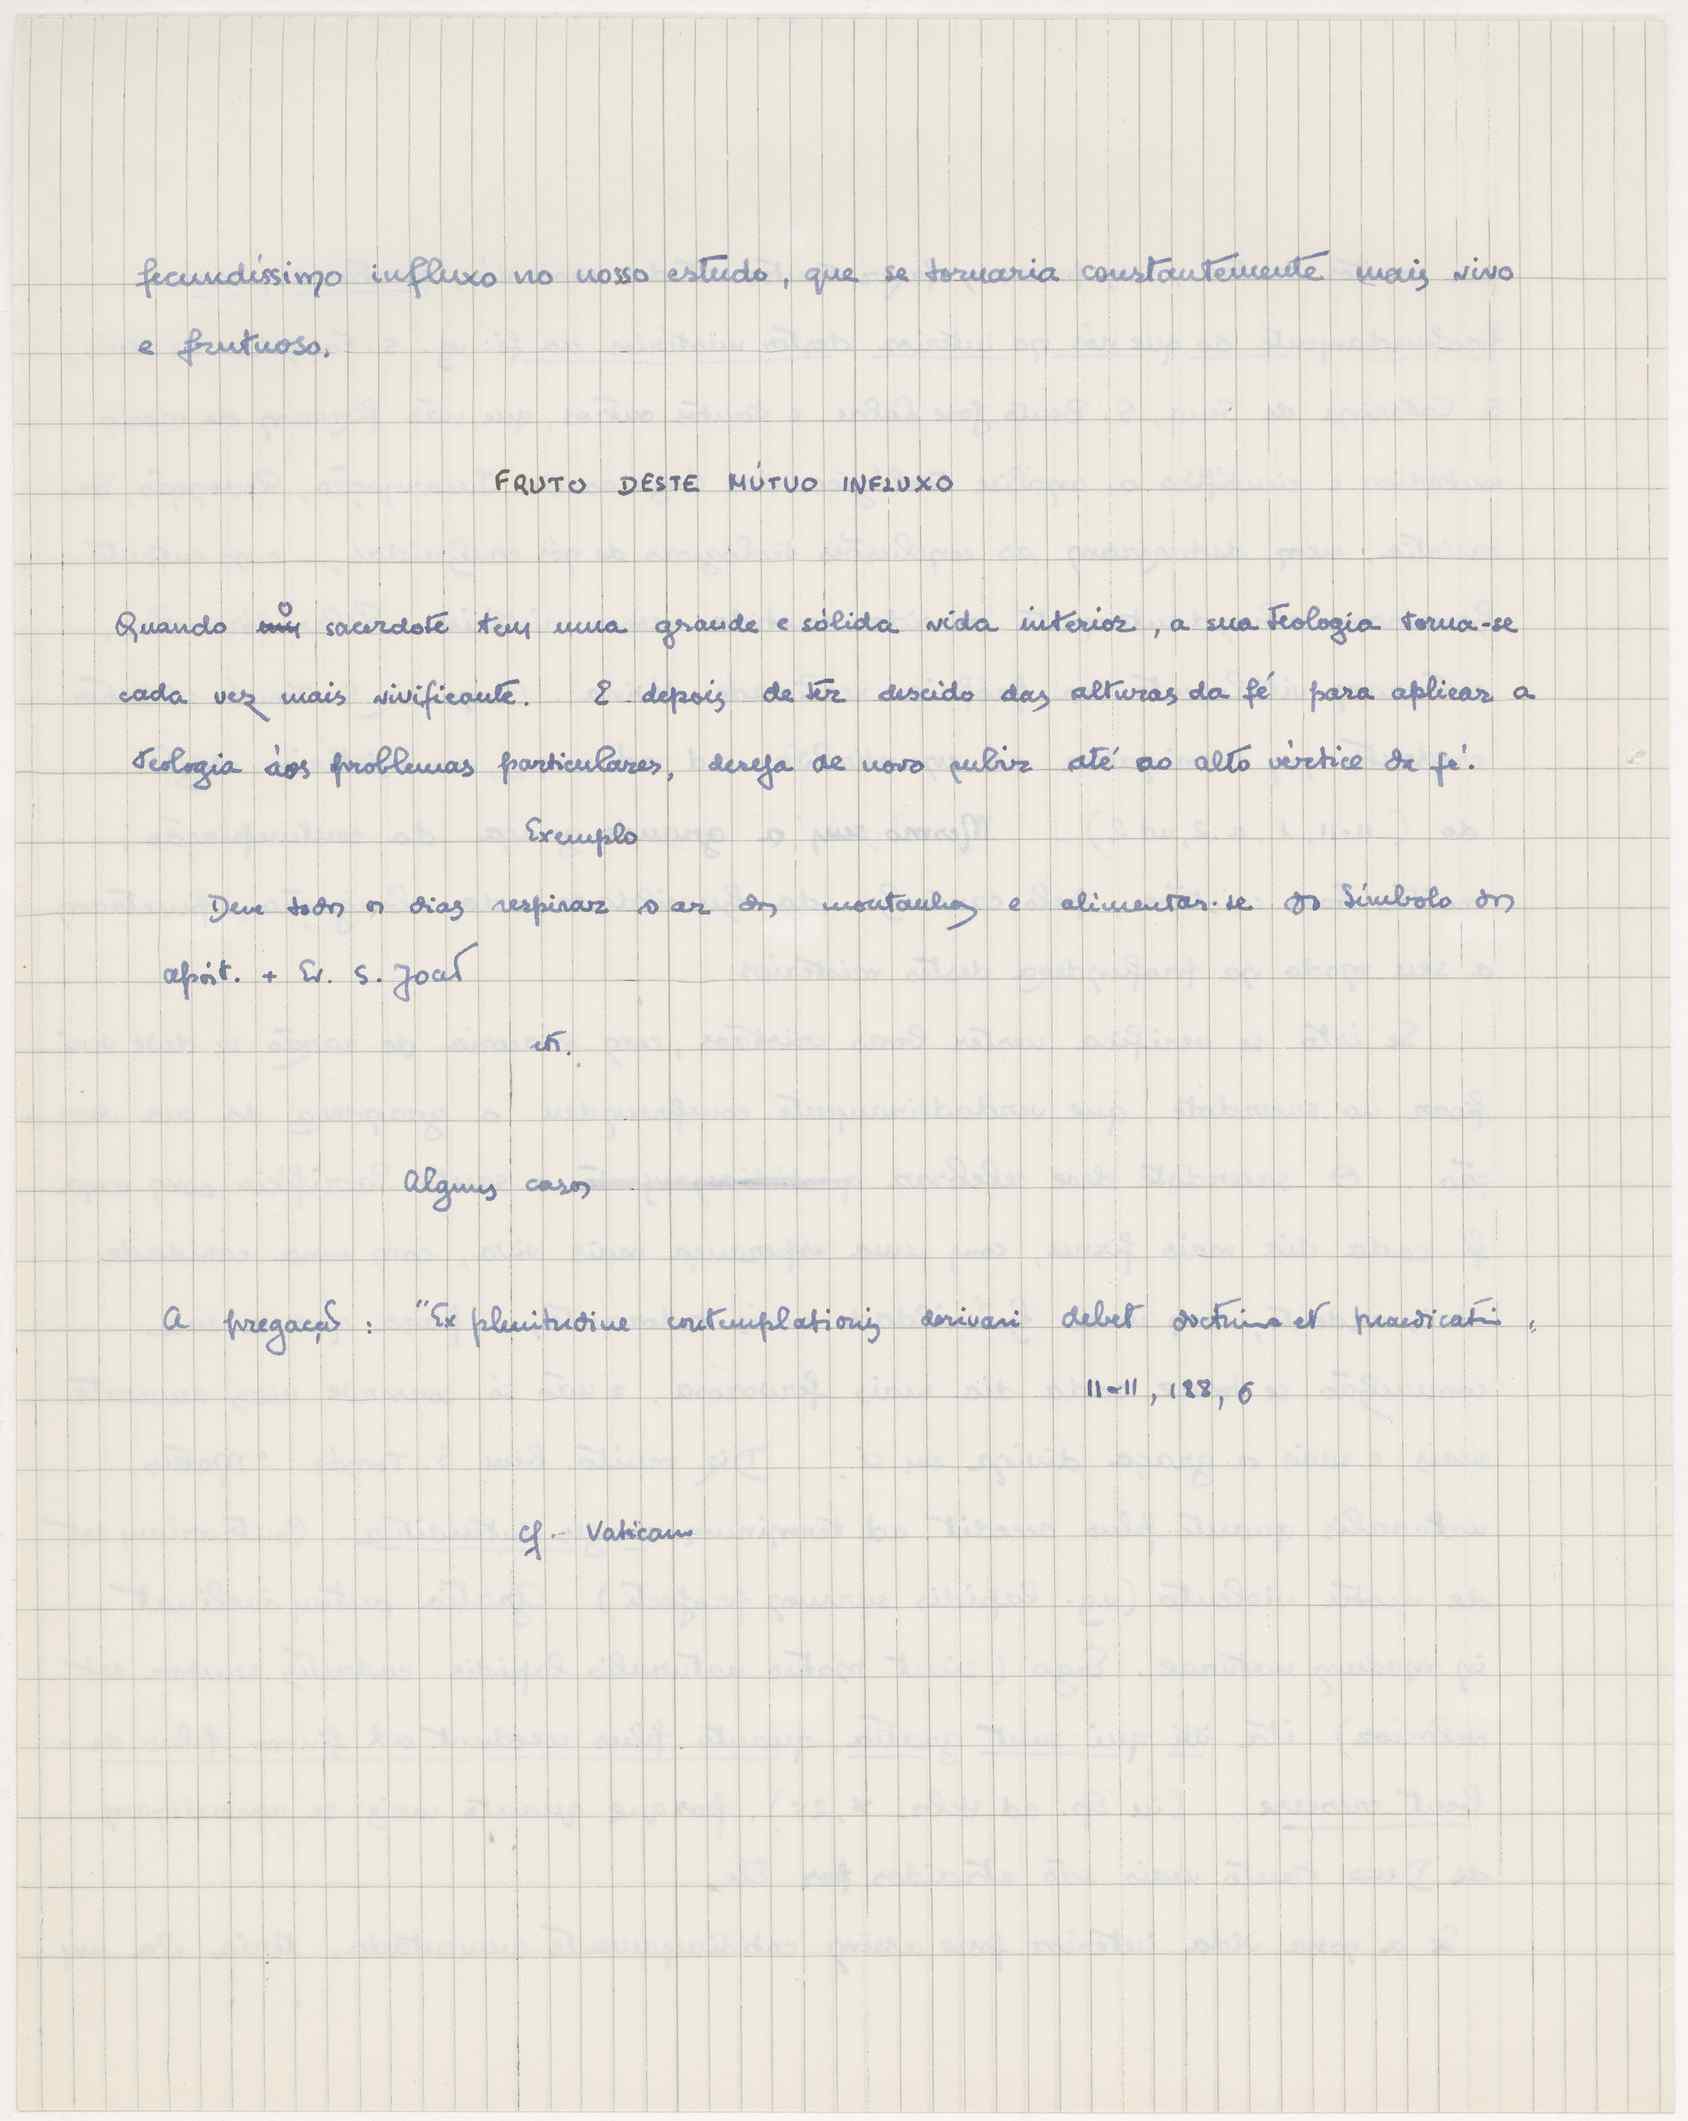 fecundíssimo influxo no nosso estudo, que se tornaria constantemente mais vivo
e frutuoso.
FRUTO DESTE MÚTUO INFLUXO
Quando o sacerdote tem uma grande e sólida vida interior, a sua teologia torna-se
cada vez mais vivificante. E depois de ter descido das alturas da fé para aplicar a
teologia aos problemas particulares, deseja de novo subir até ao alto vértice da fé.
Exemplo
Deve todos os dias respirar o ar das montanhas e alimentar-se do Símbolo dos
apóst. + Ev. S. João
etc.
Alguns casos
A pregação: "Ex plenitudine contemplationis derivari debet doctrina et praedicatio"
II-II, 188, 6
cf. Vaticano